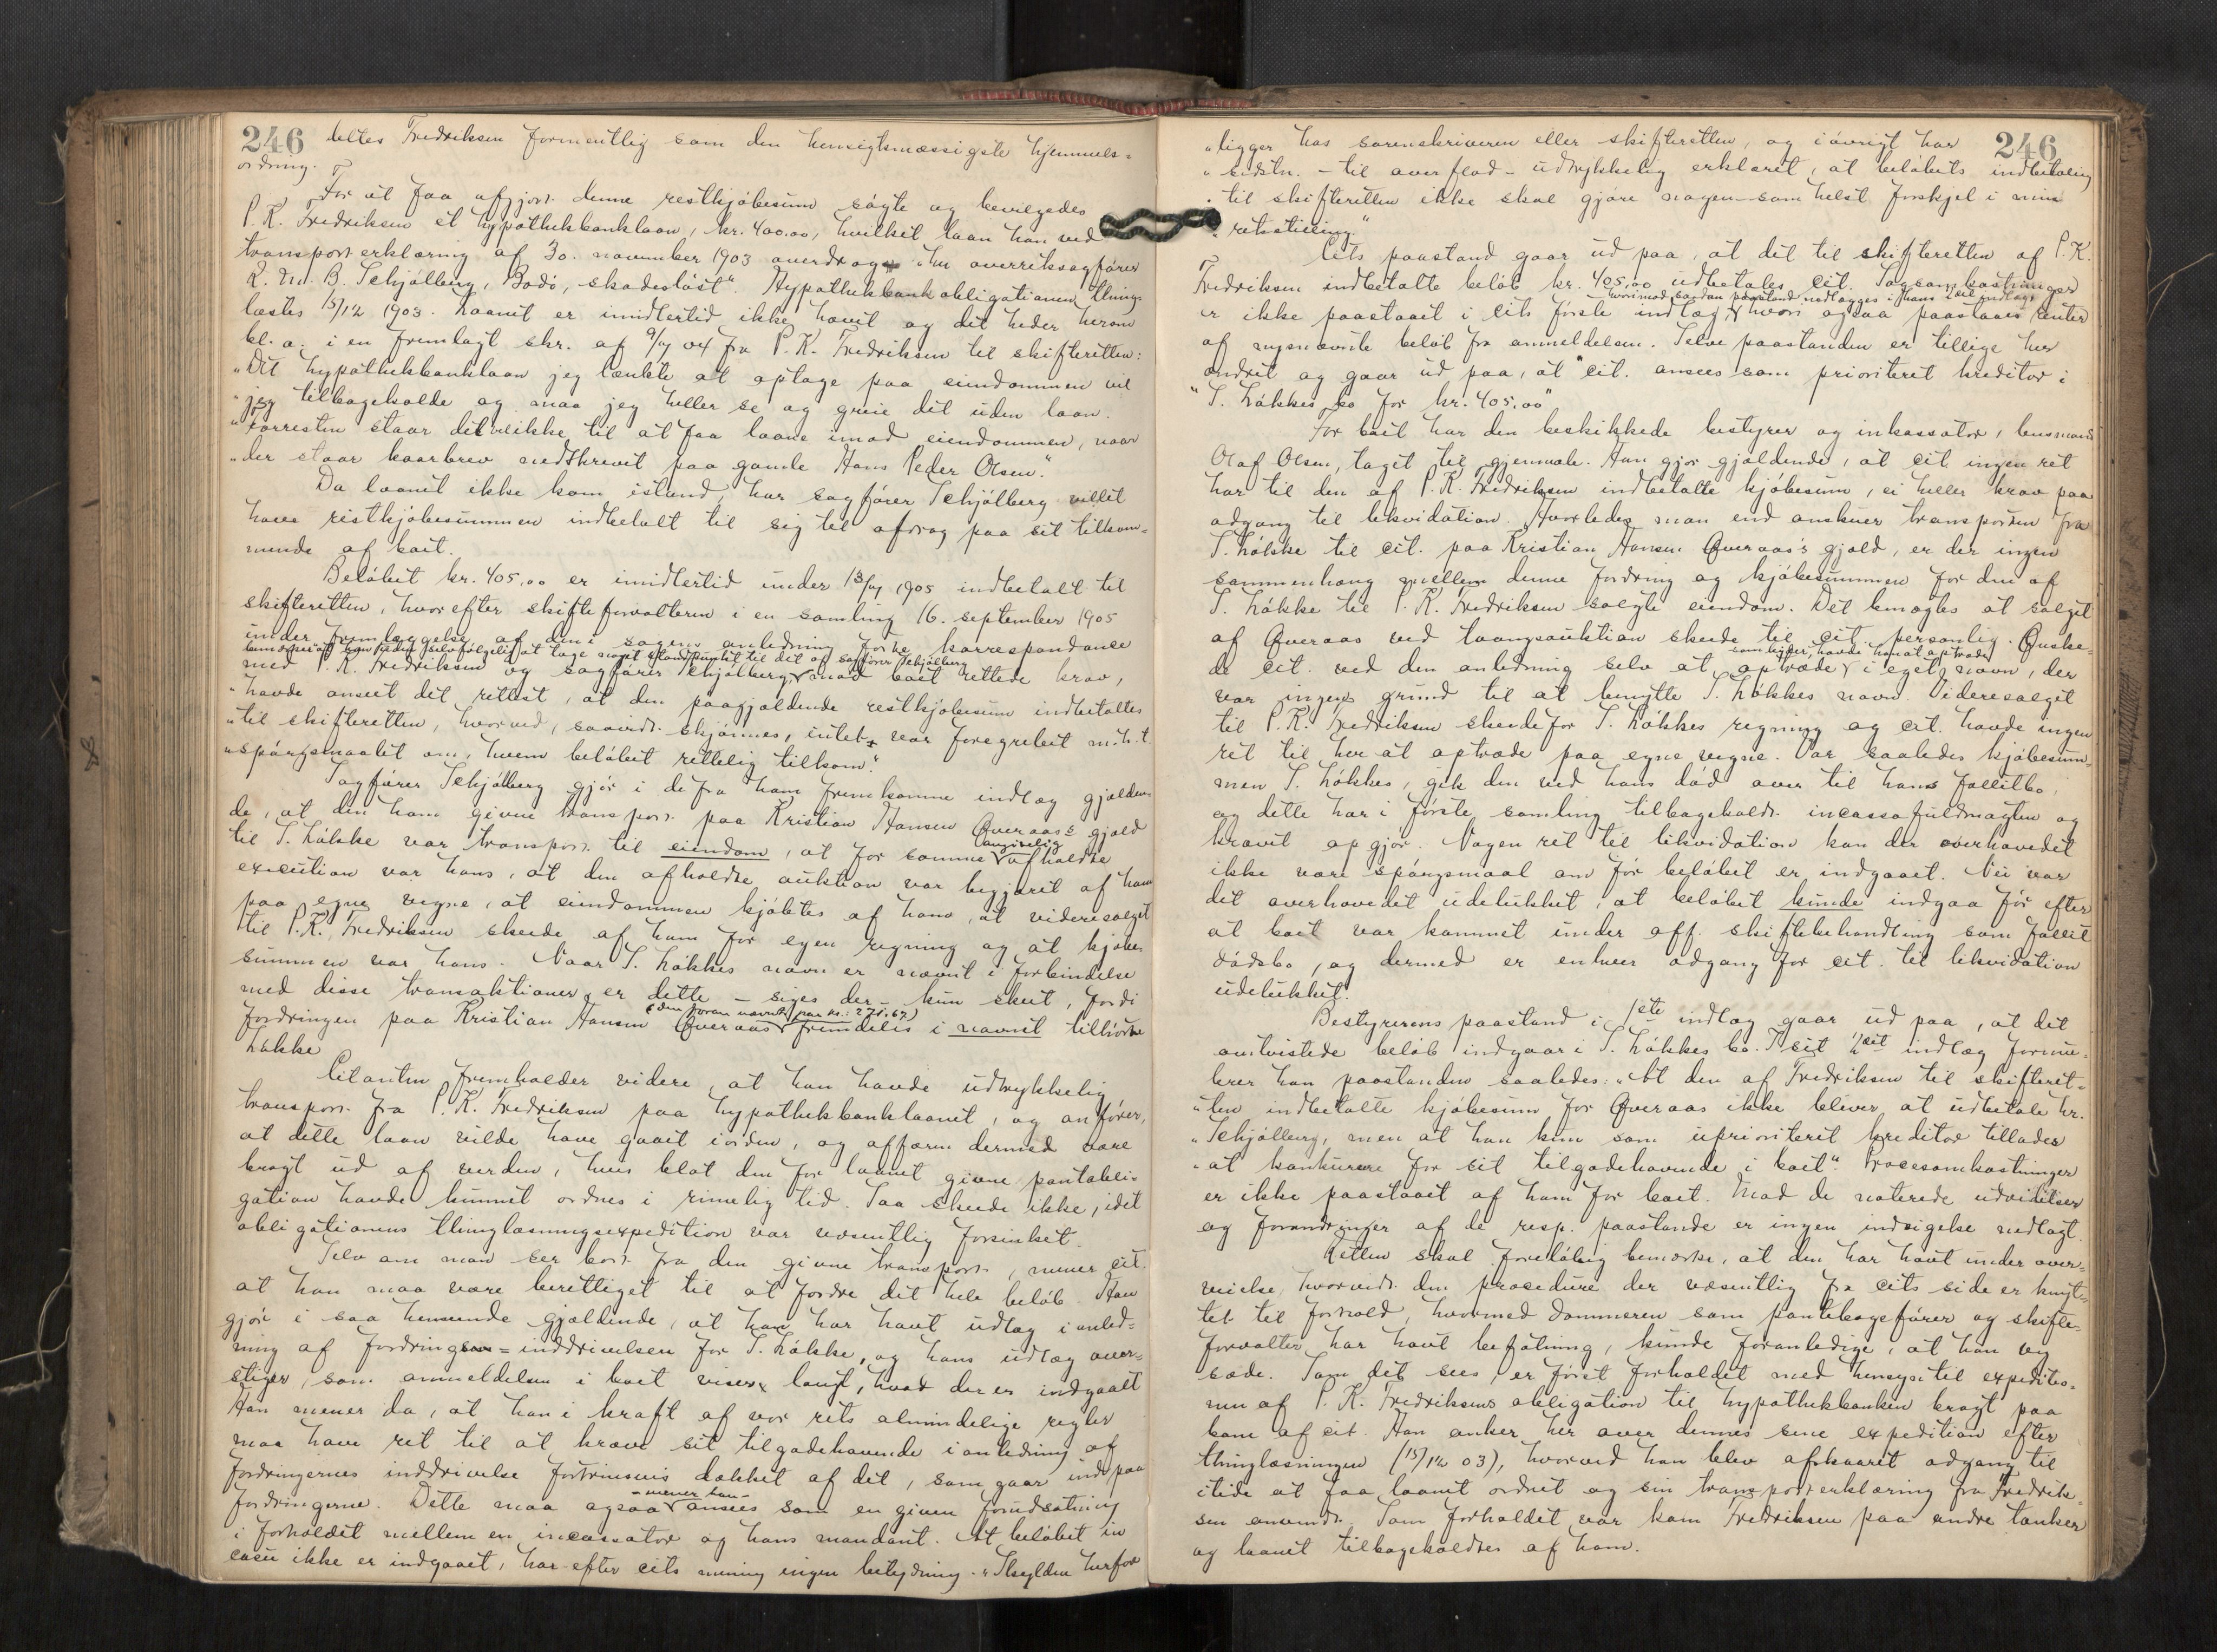 246 letes Fredriksen formentlig som den hensigtsmæssigste hjemmels=
ordning.
For at faa afgjort denne restkjøbesum søgte og bevilgedes
P. K. Fredriksen et hypothekbanklaan, kr. 400.00, hvilket laan han ved
transporterklæring af 30. november 1903 overdrog „hr overretssagfører
L. M. B. Schjølberg, Bodø, skadesløst“. Hypothekbankobligationen thing-
læstes 15/12 1903. Laanet er imidlertid ikke hævet og det heder herom
bl. a. i en fremlagt skr. af 9/ 04 fra P. K. Fredriksen til skifteretten:
„Det hypothekbanklaan jeg tænkte at optage paa eiendommen vil
„jeg tilbageholde og maa jeg heller se og greie det uden laan.
„Forresten staar det vel ikke til at faa laane imod eiendommen, naar
„der staar kaarbrev nedskrevet paa gamle Hans Peder Olsen.“
Da laanet ikke kom istand, har sagfører Schjølberg villet
have restkjøbesummen indbetalt til sig til afdrag paa sit tilkom-
mende af boet.
Beløbet kr. 405,00 er imidlertid under 13/ 1905 indbetalt til
skifteretten, hvorefter skifteforvalteren i en samling 16. september 1905
under fremlæggelse af den i sagens anledning førte korrespondance
bemærket at han uden selvfølgelig at tage noget standpunkt til det af sagfører Schjølberg
med P. K. Fredriksen og sagfører Schjølberg mod boet rettede krav,
„havde anseet det rettest, at den paagjældende restkjøbesum indbetaltes
„til skifteretten, hvorved, saavidt skjønnes, intet var foregrebet m.h.t.
„spørgsmaalet om, hvem beløbet rettelig tilkom.“
Sagfører Schjølberg gjør i de fra ham fremkomne indlæg gjælden-
de, at den ham givne transport paa Kristian Hansen Øveraas's gjæld
til S. Løkke var transport til eiendom, at for samme angivelig afholdte
execution var hans, at den afholdte auktion var begjæret af ham
paa egne vegne, at eiendommen kjøbtes af ham, at videresalget
til P. K. Fredriksen skeede af ham for egen regning og at kjøbe-
summen var hans. Naar S. Løkkes navn er nævnt i forbindelse
med disse transaktioner, er dette – siges der – kun skeet, fordi
fordringen paa Kristian Hansen Øveraas (den foran nævnte par kr.: 271,67) fremdeles i navnet tilhørte
Løkke
Citanten fremholder videre, at han havde udtrykkelig
transport fra P. K. Fredriksen paa hypothekbanklaanet, og anfører,
at dette laan vilde have gaaet iorden, og affæren dermed være
bragt ud af verden, hvis blot den for laanet givne pantobli-
gation havde kunnet ordnes i rimelig tid. Saa skeede ikke, idet
obligationens thinglæsningsexpedition var væsentlig forsinket.
Selv om man ser bort fra den givne transport, mener cit.
at han maa være berettiget til at fordre det hele beløb. Han
gjør i saa henseende gjældende, at han har havt udlæg i anled-
ning af fordrings=inddrivelsen for S. Løkke, og hans udlæg over-
stiger, som anmeldelsen i boet viser, langt, hvad der er indgaaet
Han mener da, at han i kraft af vor rets almindelige regler
maa have ret til at kræve sit tilgodehavende i anledning af
fordringernes inddrivelse fortrinsvis dækket af det, som gaar ind paa
fordringerne. Dette maa ogsaa – mener han – ansees som en given forudsætning
i forholdet mellem en incassator og hans mandant. At beløbet in
casu ikke er indgaaet, har efter cits mening ingen betydning. „Skylden herfor
„ligger hos sorenskriveren eller skifteretten, og iøvrigt har 246
„sidstn. – til overflod – udtrykkelig erklæret, at beløbets indbetaling
„til skifteretten ikke skal gjøre nogen-som helst forskjel i min
„retsstilling.“
Cits paastand gaar ud paa, at det til skifteretten af P. K.
Fredriksen indbetalte beløb kr. 405,00 udbetales cit. Sagsomkostninger
er ikke paastaaet i cits første indlæg, hvorimod saadan paastand nedlægges i hans 2det indlæg hvori ogsaa paastaaes renter
af nysnævnte beløb fra anmeldelsen. Selve paastanden er tillige her
ændret og gaar ud paa, at „cit. ansees som prioriteret kreditor i
„S. Løkkes bo for kr. 405.00“
For boet har den beskikkede bestyrer og inkassator, lensmand
Olaf Olsen, taget til gjenmæle. Han gjør gjældende, at cit. ingen ret
har til den af P. K. Fredriksen indbetalte kjøbesum, ei heller krav paa
adgang til likvidation. Hvorledes man end anskuer transporten fra
S. Løkke til cit. paa Kristian Hansen Øveraas's gjæld, er der ingen
sammenhæng mellem denne fordring og kjøbesummen for den af
S. Løkke til P. K. Fredriksen solgte eiendom. Det benægtes at salget
af Øveraas ved tvangsauktion skeede til cit. personlig. Ønske-
de cit. ved den anledning selv at optræde, havde han at optræde i eget navn, der
var ingen grund til at benytte S. Løkkes navn. Videresalget
til P. K. Fredriksen skeede for S. Løkkes regning og cit. havde ingen
ret til her at optræde paa egne vegne. Var saaledes kjøbesum-
men S. Løkkes, gik den ved hans død over til hans fallitbo,
og dette har i første samling tilbagekaldt incassofuldmagten og
krævet opgjør. Nogen ret til likvidation kan der overhovedet
ikke være spørgsmaal om før beløbet er indgaaet. Nu var
det overhovedet udelukket, at beløbet kunde indgaa før efter
at boet var kommet under off. skiftebehandling som fallit
dødsbo, og dermed er enhver adgang for cit. til likvidation
udelukket.
Bestyrerens paastand i 1ste indlæg gaar ud paa, at det
omtvistede beløb indgaar i S. Løkkes bo. I sit 2det indlæg formu-
lerer han paastanden saaledes: „At den af Fredriksen til skifteret-
„ten indbetalte kjøbesum for Øveraas ikke bliver at udbetale hr.
„Schjølberg, men at han kun som uprioriteret kreditor tillades
„at konkurrere for sit tilgodehavende i boet“. Procesomkostninger
er ikke paastaaet af ham for boet. Mod de noterede udvidelser
og forandringer af de resp. paastande er ingen indsigelse nedlagt.
Retten skal foreløbig bemærke, at den har havt under over-
veielse, hvorvidt den procedure der væsentlig fra cits side er knyt-
tet til forhold, hvormed dommeren som pantebogsfører og skifte-
forvalter har havt befatning, kunde foranledige, at han veg
sæde. Som det sees, er først forholdet med hensyn til expeditio-
nen af P. K. Fredriksens obligation til hypothekbanken bragt paa
bane af cit. Han anker her over dennes sene expedition efter
thinglæsningen (15/12 03), hvorved han blev afskaaret adgang til
itide at faa laanet ordnet og sin transporterklæring fra Fredrik-
sen anvendt. Som forholdet var kom Fredriksen paa andre tanker
og laanet tilbageholdtes af ham.